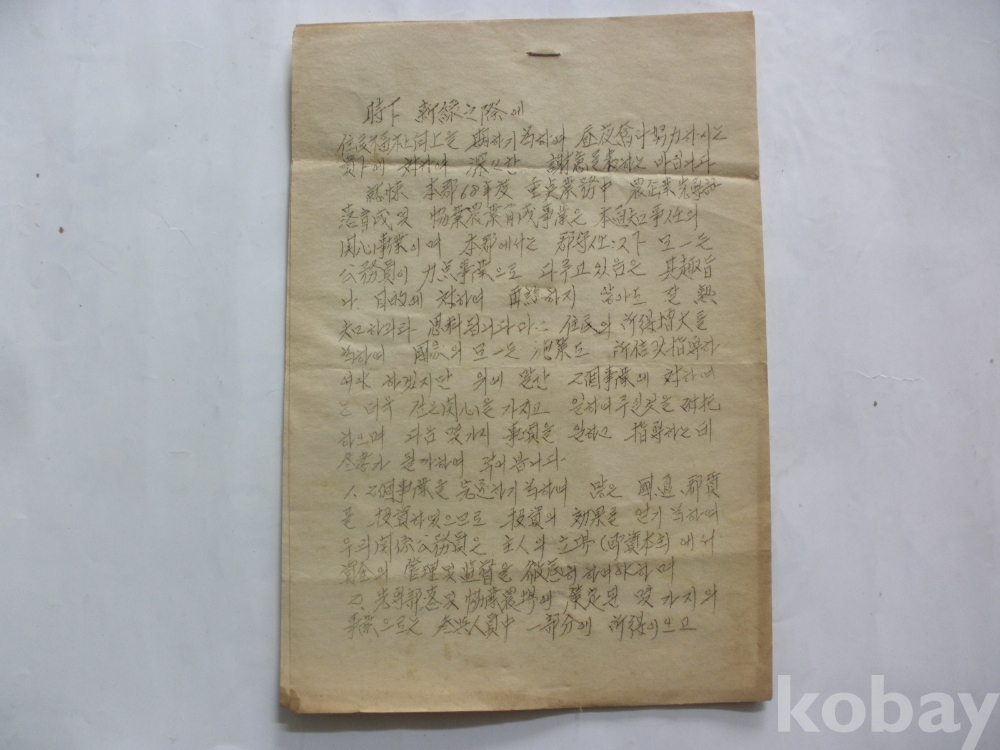 時下 新綠之際에
住民福祉向上을 期하기 爲하여 晝夜 努力하시는
貴下에 對하여 深甚한 謝意을 表하는 바입니다
本郡 68年度 重點業務中
落育成 및 協業農業育成事業은 本道知事任의
関心事業이며 本郡에서는 郡守任以下 모-든
公務員이 力点事業으로 다루고 있음은 其趣旨
나 目的에 對하여 再論하지 않아도 잘 熟
知하리라 思料됩니다마는 住民의 所得增大를
爲하여 國家의 모-든 施策도 所信껏 指導하
여야 하겠지만 위에 말한 2個事業에 對하여
는 더욱 깊은 関心을 가지고 일하여주실것을 付托
하으며 다음 몇가지 事項을 원하고 指導하는데
参考가 될까하여 합니다
1. 2個事業을 完遂하기 爲하여 많은 國,道,郡費
를 投資하였으므로 投資의 効果를 얻기 爲하여
우리 関係公務員은 主人의 立場(即資本主)에서
資金의 管理 및 監督을 徹底히 하여야 하며
2. 先導部落 및 協業農場에 策定된 몇가지의
事業으로는 参與人員中 一部分이 所得이 오고
kobay